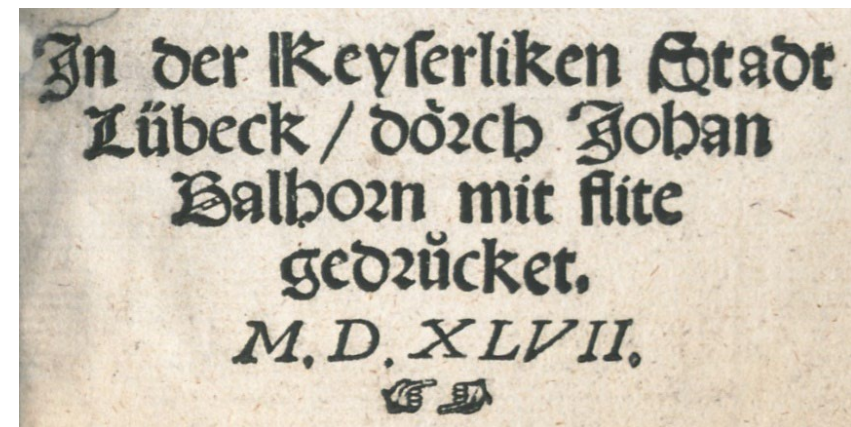 In der Keyserliken Stadt
Lübeck / dörch Johan
Balhorn mit flite
gedrůcket.
M. D. XLVII.